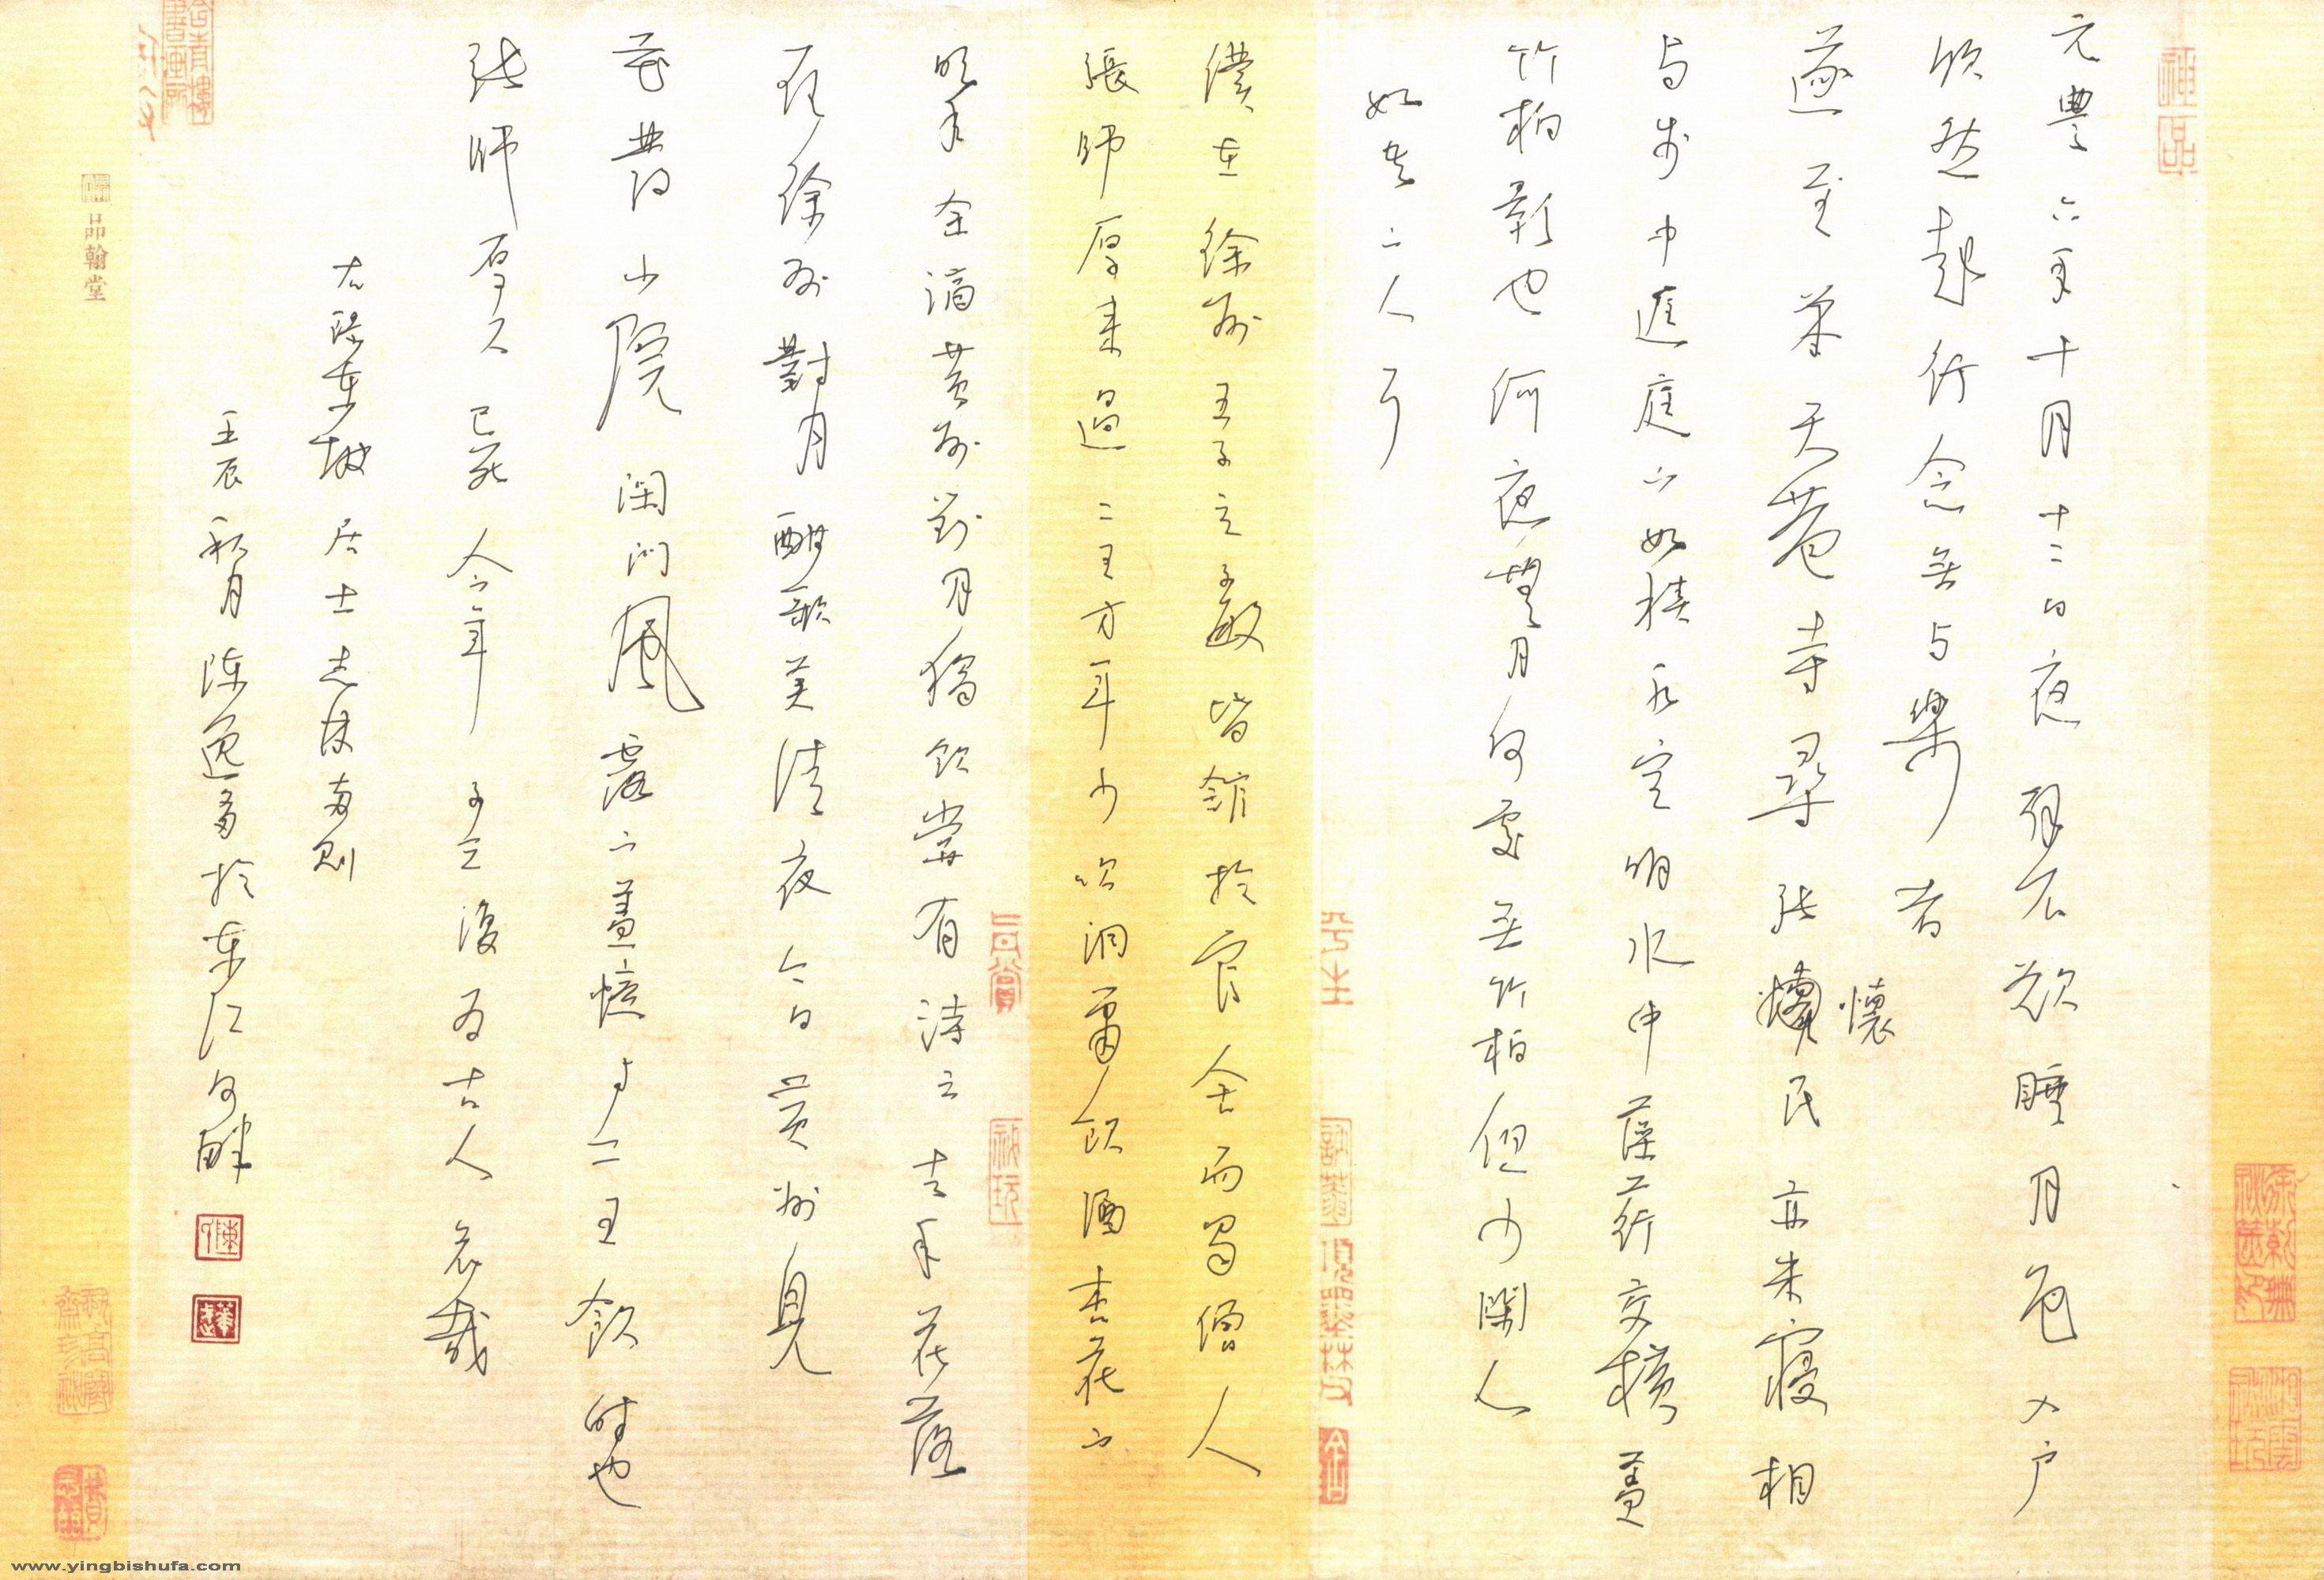 元豐六年十月十二日夜解衣欲睡月色入户
欣然起行念無与樂者
遂至承天巷寺尋張懷民亦未寢相
与步中遊庭下如積水空明水中藻荇交橫蓋
竹柏影也何夜無月何處無竹柏但少閑人
如吾二人耳
僕在徐州王子立子敏皆館於官舍而蜀僧人
張師厚來過二王方年少吹洞簫飲酒杏花下
明年余謫黄州對月獨飲嘗有詩云去年花落
在徐州對月酣歌美清夜今日黄州見
花發小院閑門風露下蓋憶与二王飲時也
張師厚久已死今年子立復為古人哀哉
右録東坡居士志林兩則
壬辰秋月陳逸書於東江河畔
神品
品翰堂
www.yingbishufa.com